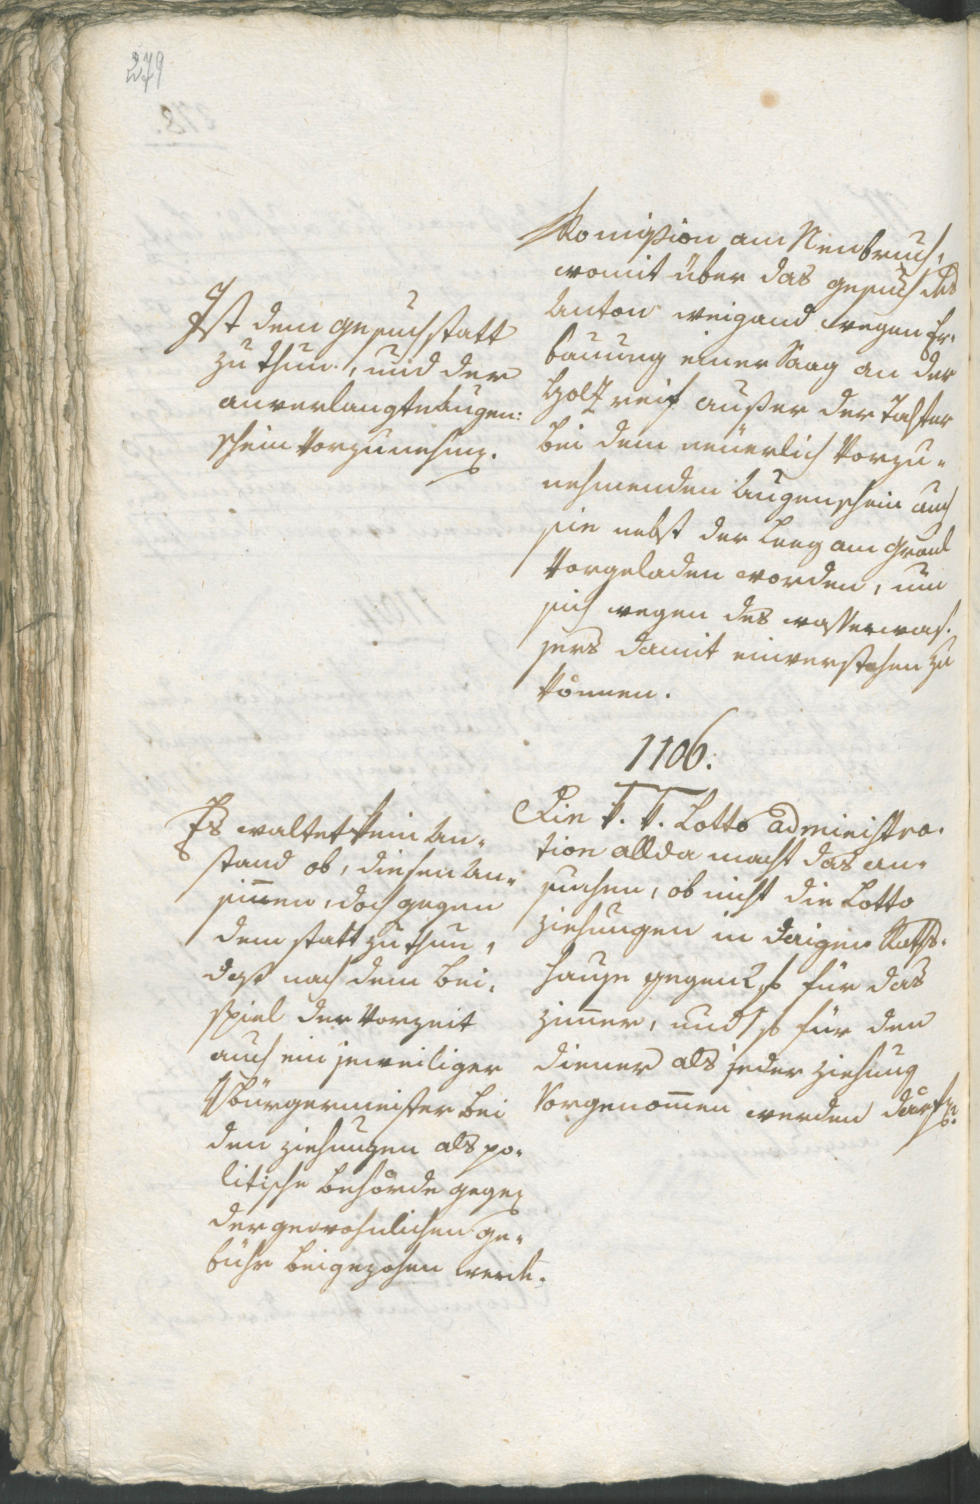 279
Komißion am Neubruch,
womit über das gesuch des
Anton weigand wegen Er-
bauung einer Saag an der
Holzreif außer der Talfer
bei dem neüerlich Vorzu-
nehmenden Augenschein auch
sie nebst der Leeg am Grand
Vorgeladen worden, um
sich wegen des wasserwas-
sers damit einverstehen zu
können.
Ist dem gesuch statt
zu thun, und der
anverlangte Augen-
schein Vorzunehmen.
1106.
Die k. k. Lotto administra-
tion allda macht das an-
suchen, ob nicht die Lotto
ziehungen in dasigen Raths-
hause gegen 2 f für das
zimmer, und 1 f für den
diener als jeder ziehung
Vorgenommen werden darf.
Es waltet kein An-
stand ob, diesen An-
sinnen, doch gegen
dem statt zu thun,
daß nach dem Bei-
spiel der Vorzeit
auch ein jeweiliger
Bürgermeister bei
den ziehungen als po-
litische behörde gegen
der gewohnlichen ge-
bühr beigezohen werde.